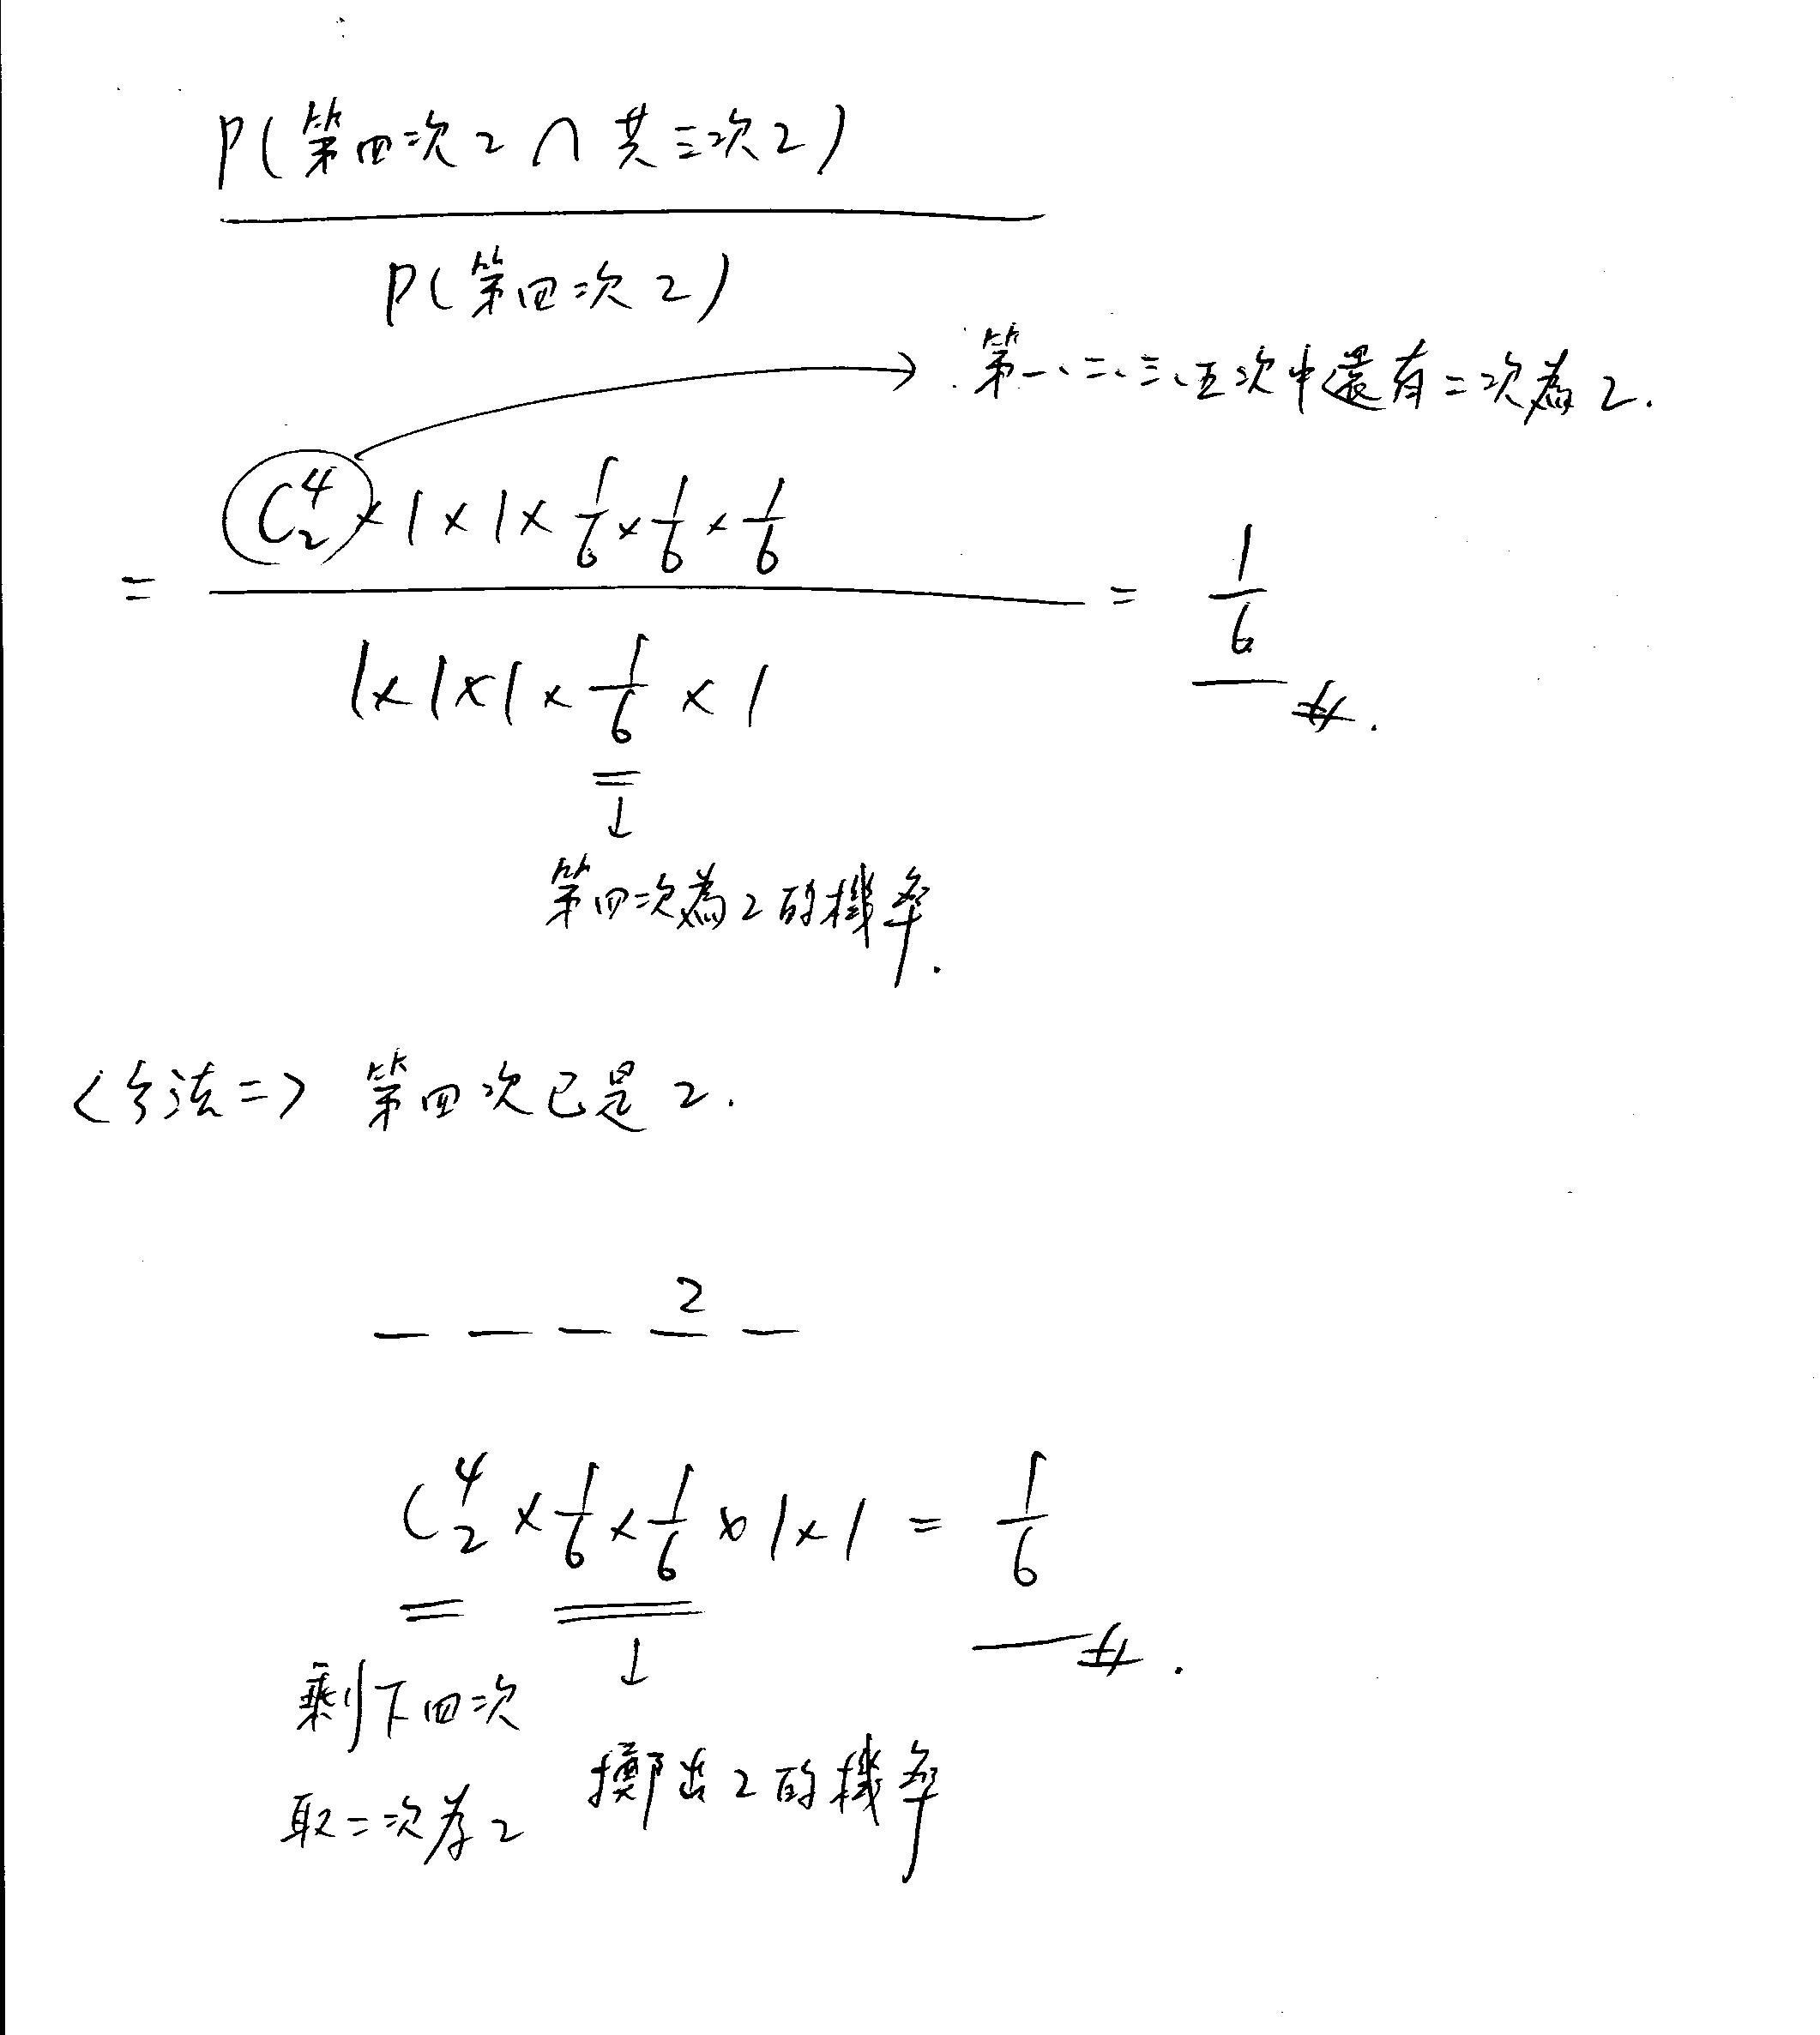 P(第四次2 ∩ 共三次2)
P(第四次2)
第一、二、三、五次中還有二次為2.
= C⁴₂ × 1 × 1 × 1/6 × 1/6 × 1/6
1 × 1 × 1 × 1/6 × 1
= 1/6 #.
↓
第四次為2的機率.
<方法二> 第四次已是2.
_ _ _ 2 _
C⁴₂ × 1/6 × 1/6 × 1 × 1 = 1/6 #.
↓
剩下四次
取二次為2
擲出2的機率